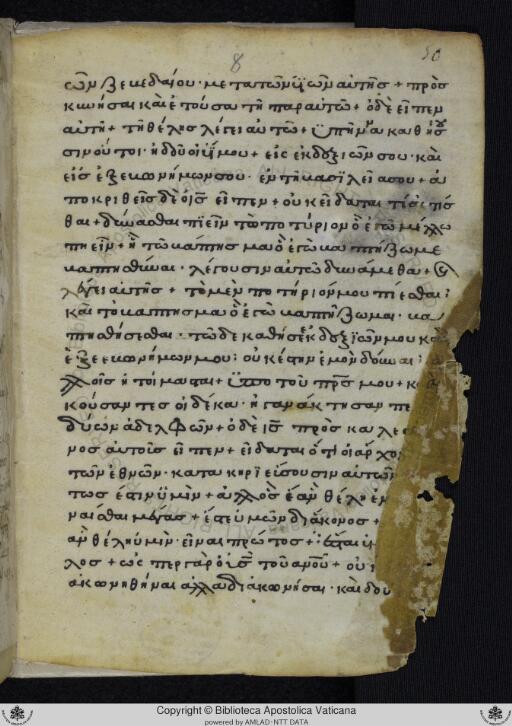 8 50
σῶν Ζεβεδαίου · μετα τῶν ϋϊῶν αὐτῆς + πρὸσ
κυνῆσαι καὶ ἐτοῦσα τῆ παραὐτῶ + ὁ δὲ εἶπεν
αὐτῆ + τῆ θέλης λέγει αὐτῶ +
σιν οὗτοι · ἡ δύο ϋϊ μου + εἰς ἐκ δεξιῶν σου · καὶ
εἰς ἐξ εὐωνήμων σου · ἐν τῆ βασϊλεία σου + ἀ
ποκριθεὶς δὲ ὁ ις̅ εἶπεν + οὐκ εἴδαται τί αἰτῆσ
θαι + δύνασθαι πϊεῖν τὸ ποτύριον ὃ ἐγὼ μέλλω
πηεῖν + ἢ τῶ βάπτησμα ὃ ἐγὼ βαπτήζωμε
βαπτηθῆναι · λέγουσιν αὐτῶ δυνάμεθα +
λέγει αὐτῆς + τὸ μὲν ποτήριόν μου πίεσθαι :
καὶ τὸ βάπτησμα ὃ ἐγὼ βαπτήζωμαι · βα
πτηθήσεσθαι · τῶ δὲ καθῆσε ἐκ δεξϊῶν μου κα
ἐξ εὐωνήμων μου : οὐκ ἔστιν ἐμὸν δοῦναι : ἀ
λλοῖς ἡτοίμασται + ϋπὸ τοῦ πρ̅ς μου + κα
κούσαντες οἱ δέκα · ἠγανάκτησαν πε
δύων ἀδελφῶν + ὁ δὲ ις̅ προσκαλεσ
νος αὐτοὶς εἶπεν + εἴδαται ὅτι οἱ ἄρχον
τῶν ἐθνῶν · κατακηρϊεύουσιν αὐτῶν
τως ἔστιν ϋμῖν + ἀλλ ὸς ἐὰν θέλη ἐν
ναίσθαι μέγας + ἔσται ὑμῶν διάκονος +
ἂν θέλη ὑμῖν · εἶναι πρῶτος + ἔσται
λος + ὥσπερ γὰρ ὁ υς̅ τοῦ ανου̅ + οὐκ
ακονηθῆναι ἀλλὰ διακονῆσαι · καὶ δου
Copyright © Biblioteca Apostolica Vaticana
powered by AMLAD · NTT DATA